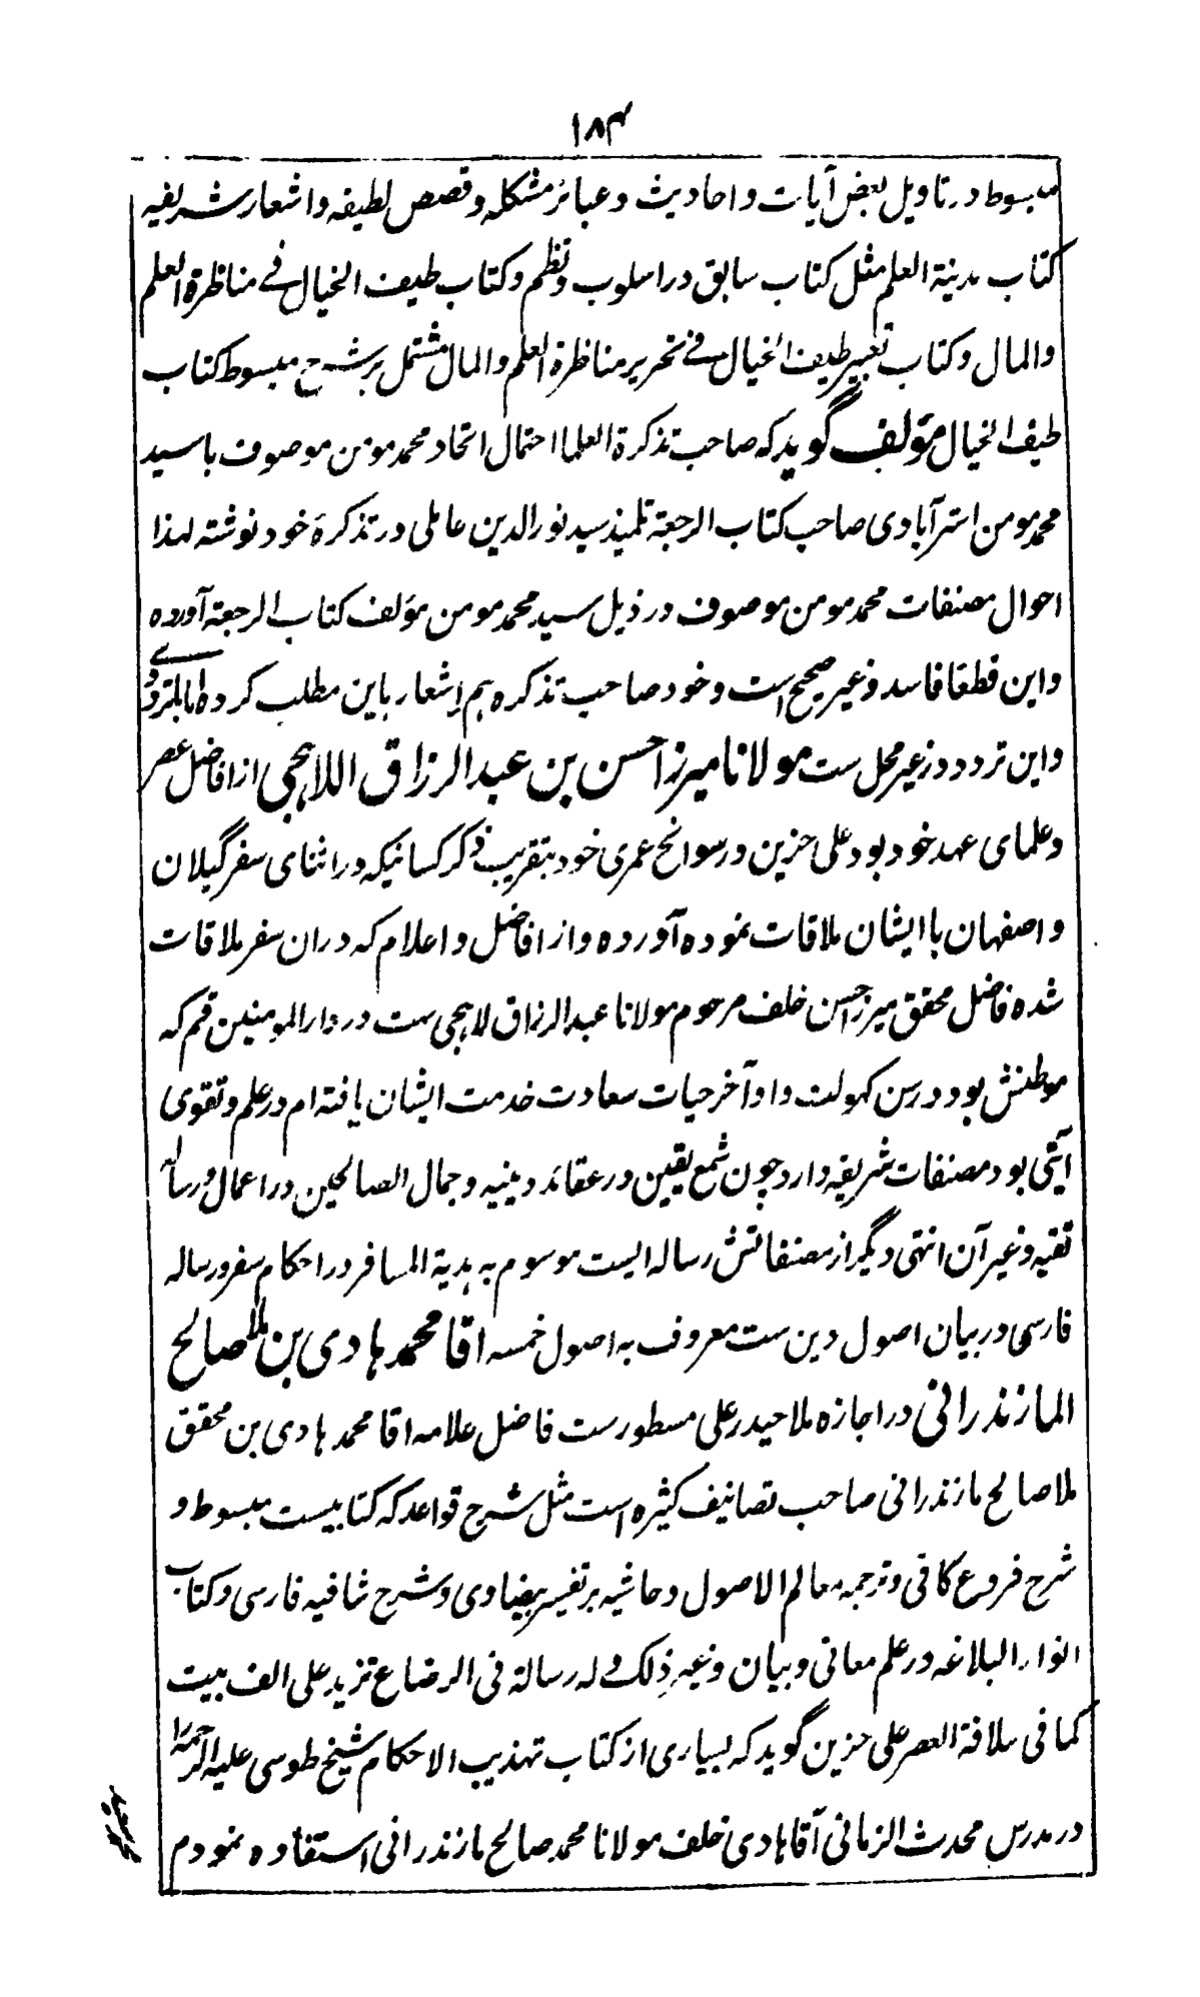 ۱۸۴
مبسوط در تاویل بعض آیات و احادیث و عبائر مشکله و قصص لطیفه و اشعار شریفه
کتاب مدینة العلم مثل کتاب سابق در اسلوب و نظم و کتاب طیف الخیال فے مناظرة العلم
والمال و کتاب تعبیر طیف الخیال فے تحریر مناظرة العلم والمال مشتمل بر شرح مبسوط کتاب
طیف الخیال مؤلف گوید که صاحب تذکرة العلما احتمال اتحاد محمد مومن موصوف با سید
محمد مومن استرآبادی صاحب کتاب الرجعة تلمیذ سید نورالدین عاملی در تذکرهٔ خود نوشته لهذا
احوال مصنفات محمد مومن موصوف در ذیل سید محمد مومن مؤلف کتاب الرجعة آورده
و این قطعا فاسد و غیر صحیح است و خود صاحب تذکره هم اِشعار باین مطلب کرده
و این تردد در غیر محل ست مولانا میرزا حسن بن عبد الرزاق اللاهجی از افاضل عصر
و علمای عهد خود بود علی حزین در سوانح عمری خود بتقریب ذکر کسانیکه در اثنای سفر گیلان
و اصفهان با ایشان ملاقات نموده آورده و از افاضل و اعلام که دران سفر ملاقات
شده فاضل محقق میرزا حسن خلف مرحوم مولانا عبد الرزاق لاهجی ست در دار المومنین قم که
موطنش بود در سن کهولت و اواخر حیات سعادت خدمت ایشان یافته ام در علم و تقوی
آیتی بود مصنفات شریفه دارد چون شمع یقین در عقائد دینیه و جمال الصالحین در اعمال و رساله
تقیه و غیر آن انتهی دیگر از مصنفاتش رساله ایست موسوم به هدیة المسافر در احکام سفر و رساله
فارسی در بیان اصول دین ست معروف به اصول خمسه اقا محمد هادی بن ملا صالح
المازندرانی در اجازه ملا حیدر علی مسطورست فاضل علامه اقا محمد هادی بن محقق
ملا صالح مازندرانی صاحب تصانیف کثیره است مثل شرح قواعد که کتابیست مبسوط و
شرح فروع کافی و ترجمه معالم الاصول و حاشیه بر تفسیر بیضاوی و شرح شافیه فارسی و کتاب
انوار البلاغه در علم معانی و بیان و غیر ذلک وله رسالة فی الرضاع تزید علی الف بیت
کما فی سلافة العصر علی حزین گوید که بسیاری از کتاب تهذیب الاحکام شیخ طوسی علیه الرحمة را
در مدرس محدث الزمانی آقا هادی خلف مولانا محمد صالح مازندرانی استفاده نمودم